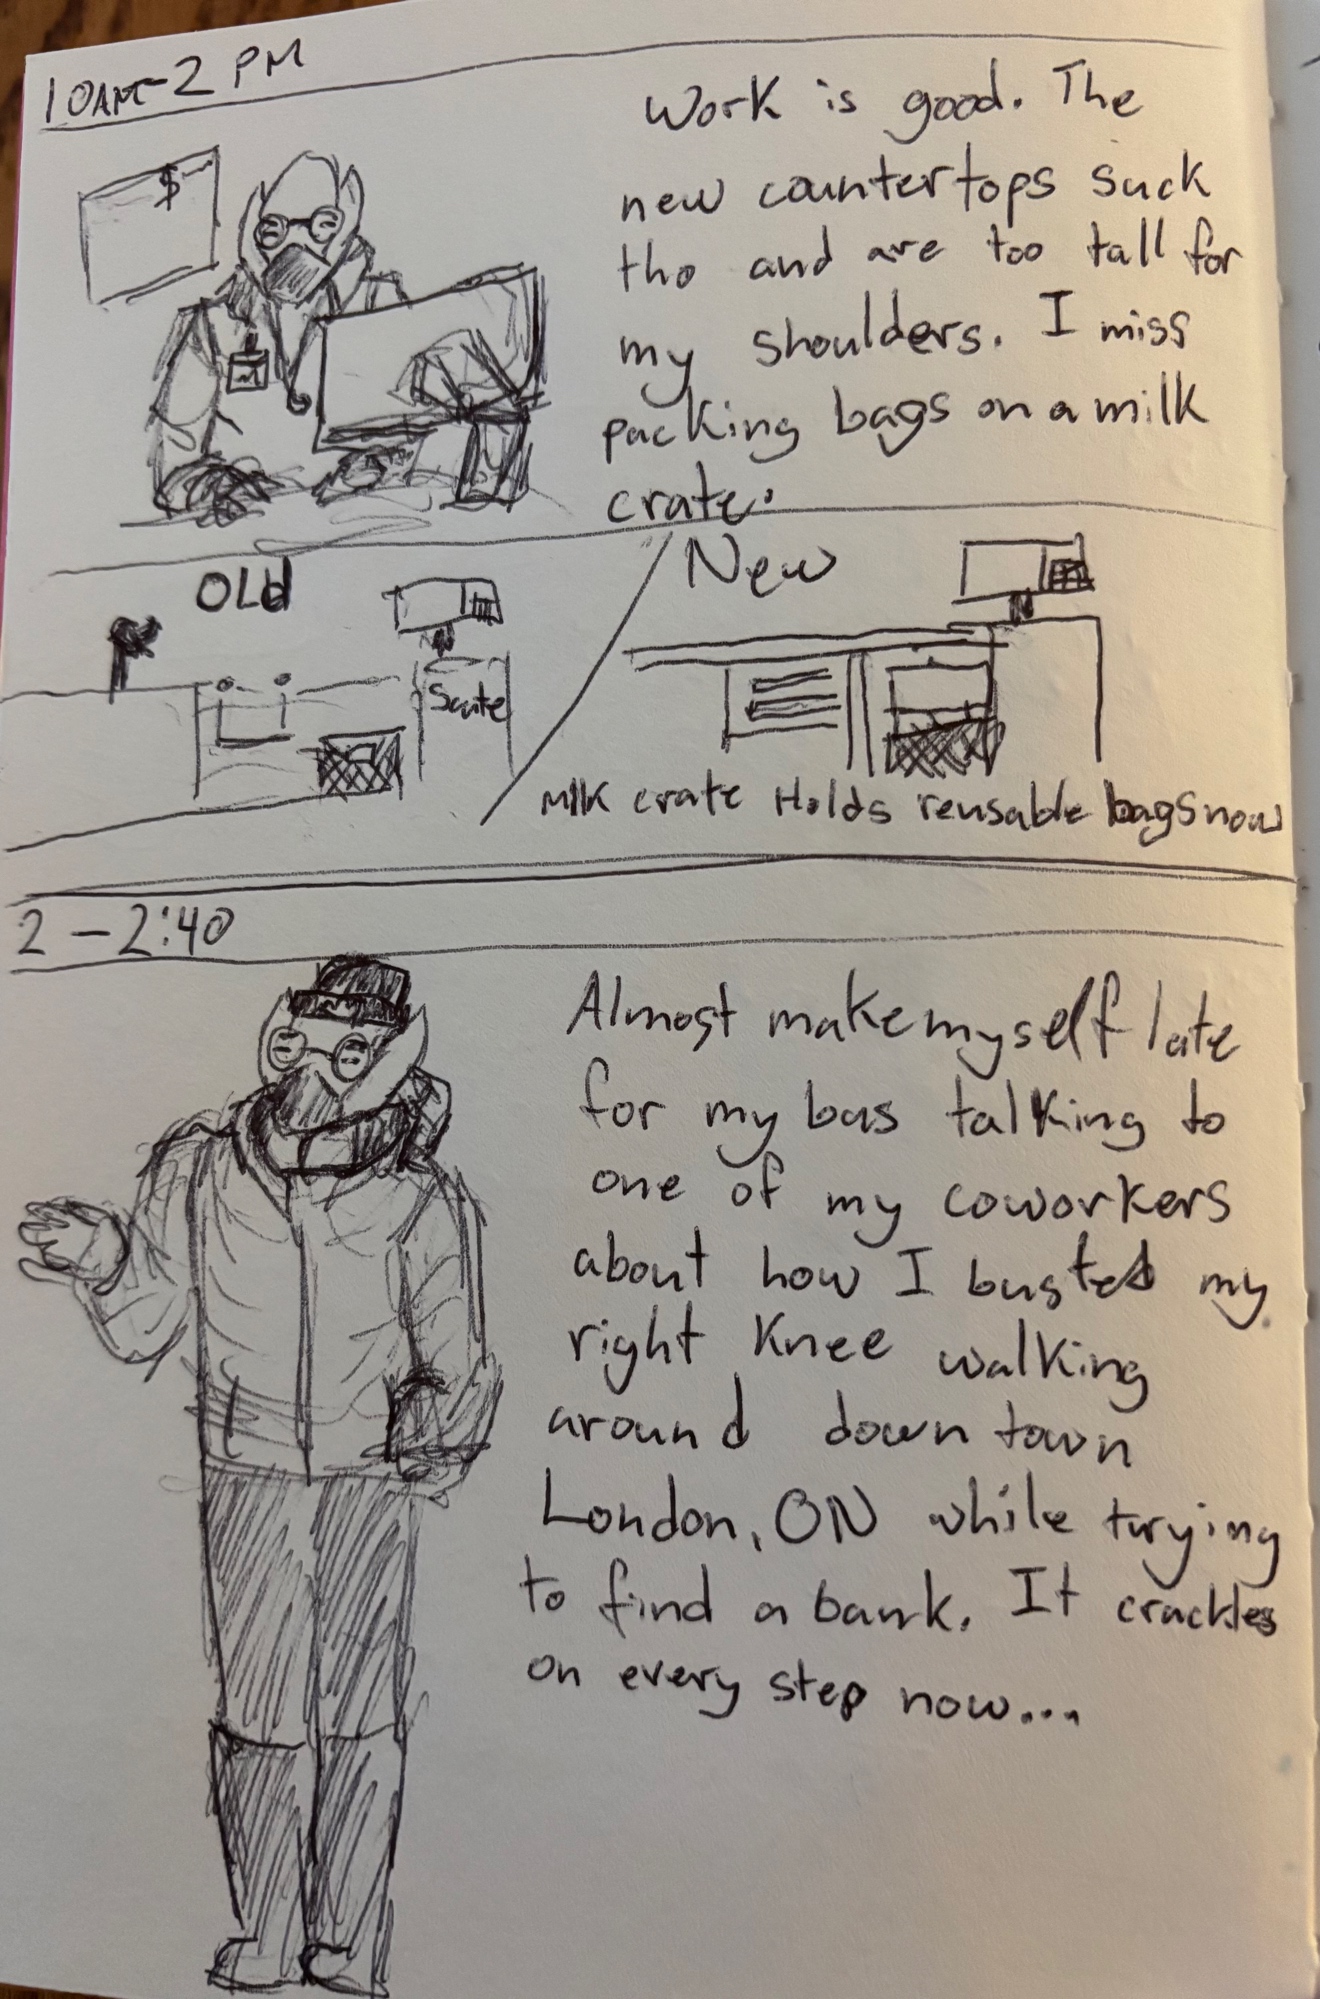 10AM-2 PM
$
Work is good. The
new countertops suck
tho and are too tall for
my shoulders. I miss
packing bags on a milk
crate.
OLd
New
Milk crate Holds reusable bags now
2 - 2:40
Almost make myself late
for my bus talking to
one of my coworkers
about how I busted my
right knee walking
around downtown
London, ON while trying
to find a bank. It crackles
on every step now...